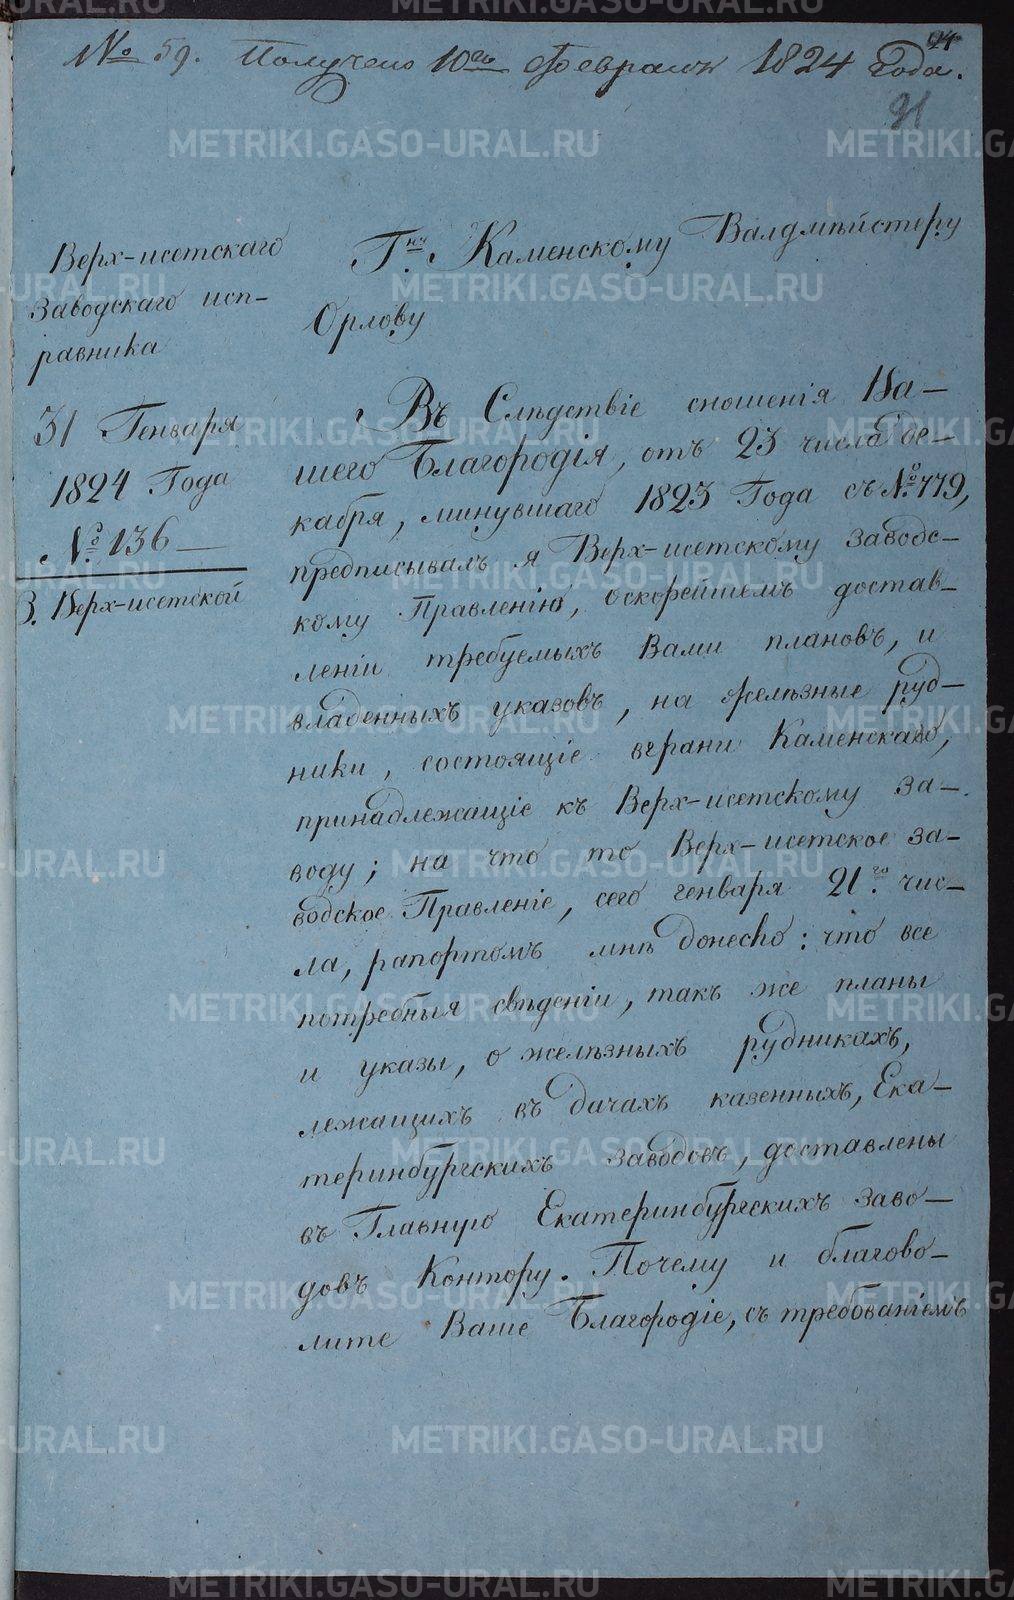 № 59. Получено 10го Февраля 1824 Года.
91
Верх-исетскаго
Заводскаго исп-
равника
31 Генваря
1824 Года
№ 136
В. Верх-исетской
Гну Каменскому Валдмейстеру
Орлову
Въ Слѣдствіе сношенія Ва-
шего Благородія, отъ 23 числа де-
кабря, минувшаго 1823 Года съ № 779,
предписывалъ я Верх-исетскому заводс-
кому Правленію, оскорейшемъ достав-
леніи требуемыхъ Вами плановъ, и
владенныхъ указовъ, на желѣзные руд-
ники, состоящіе вграни Каменскаго,
принадлежащіе къ Верх-исетскому за-
воду; на что то Верх-исетское за-
водское Правленіе, сего генваря 21го чис-
ла, рапортомъ мнѣ донесло: что все
потребныя свѣденіи, такъ же планы
и указы, о желѣзныхъ рудникахъ,
лежащихъ въ дачахъ казенныхъ, Ека-
теринбургскихъ заводовъ, доставлены
въ Главную Екатеринбургскихъ заво-
довъ Контору. Почему и благово-
лите Ваше Благородіе, съ требованіемъ
METRIKI.GASO-URAL.RU